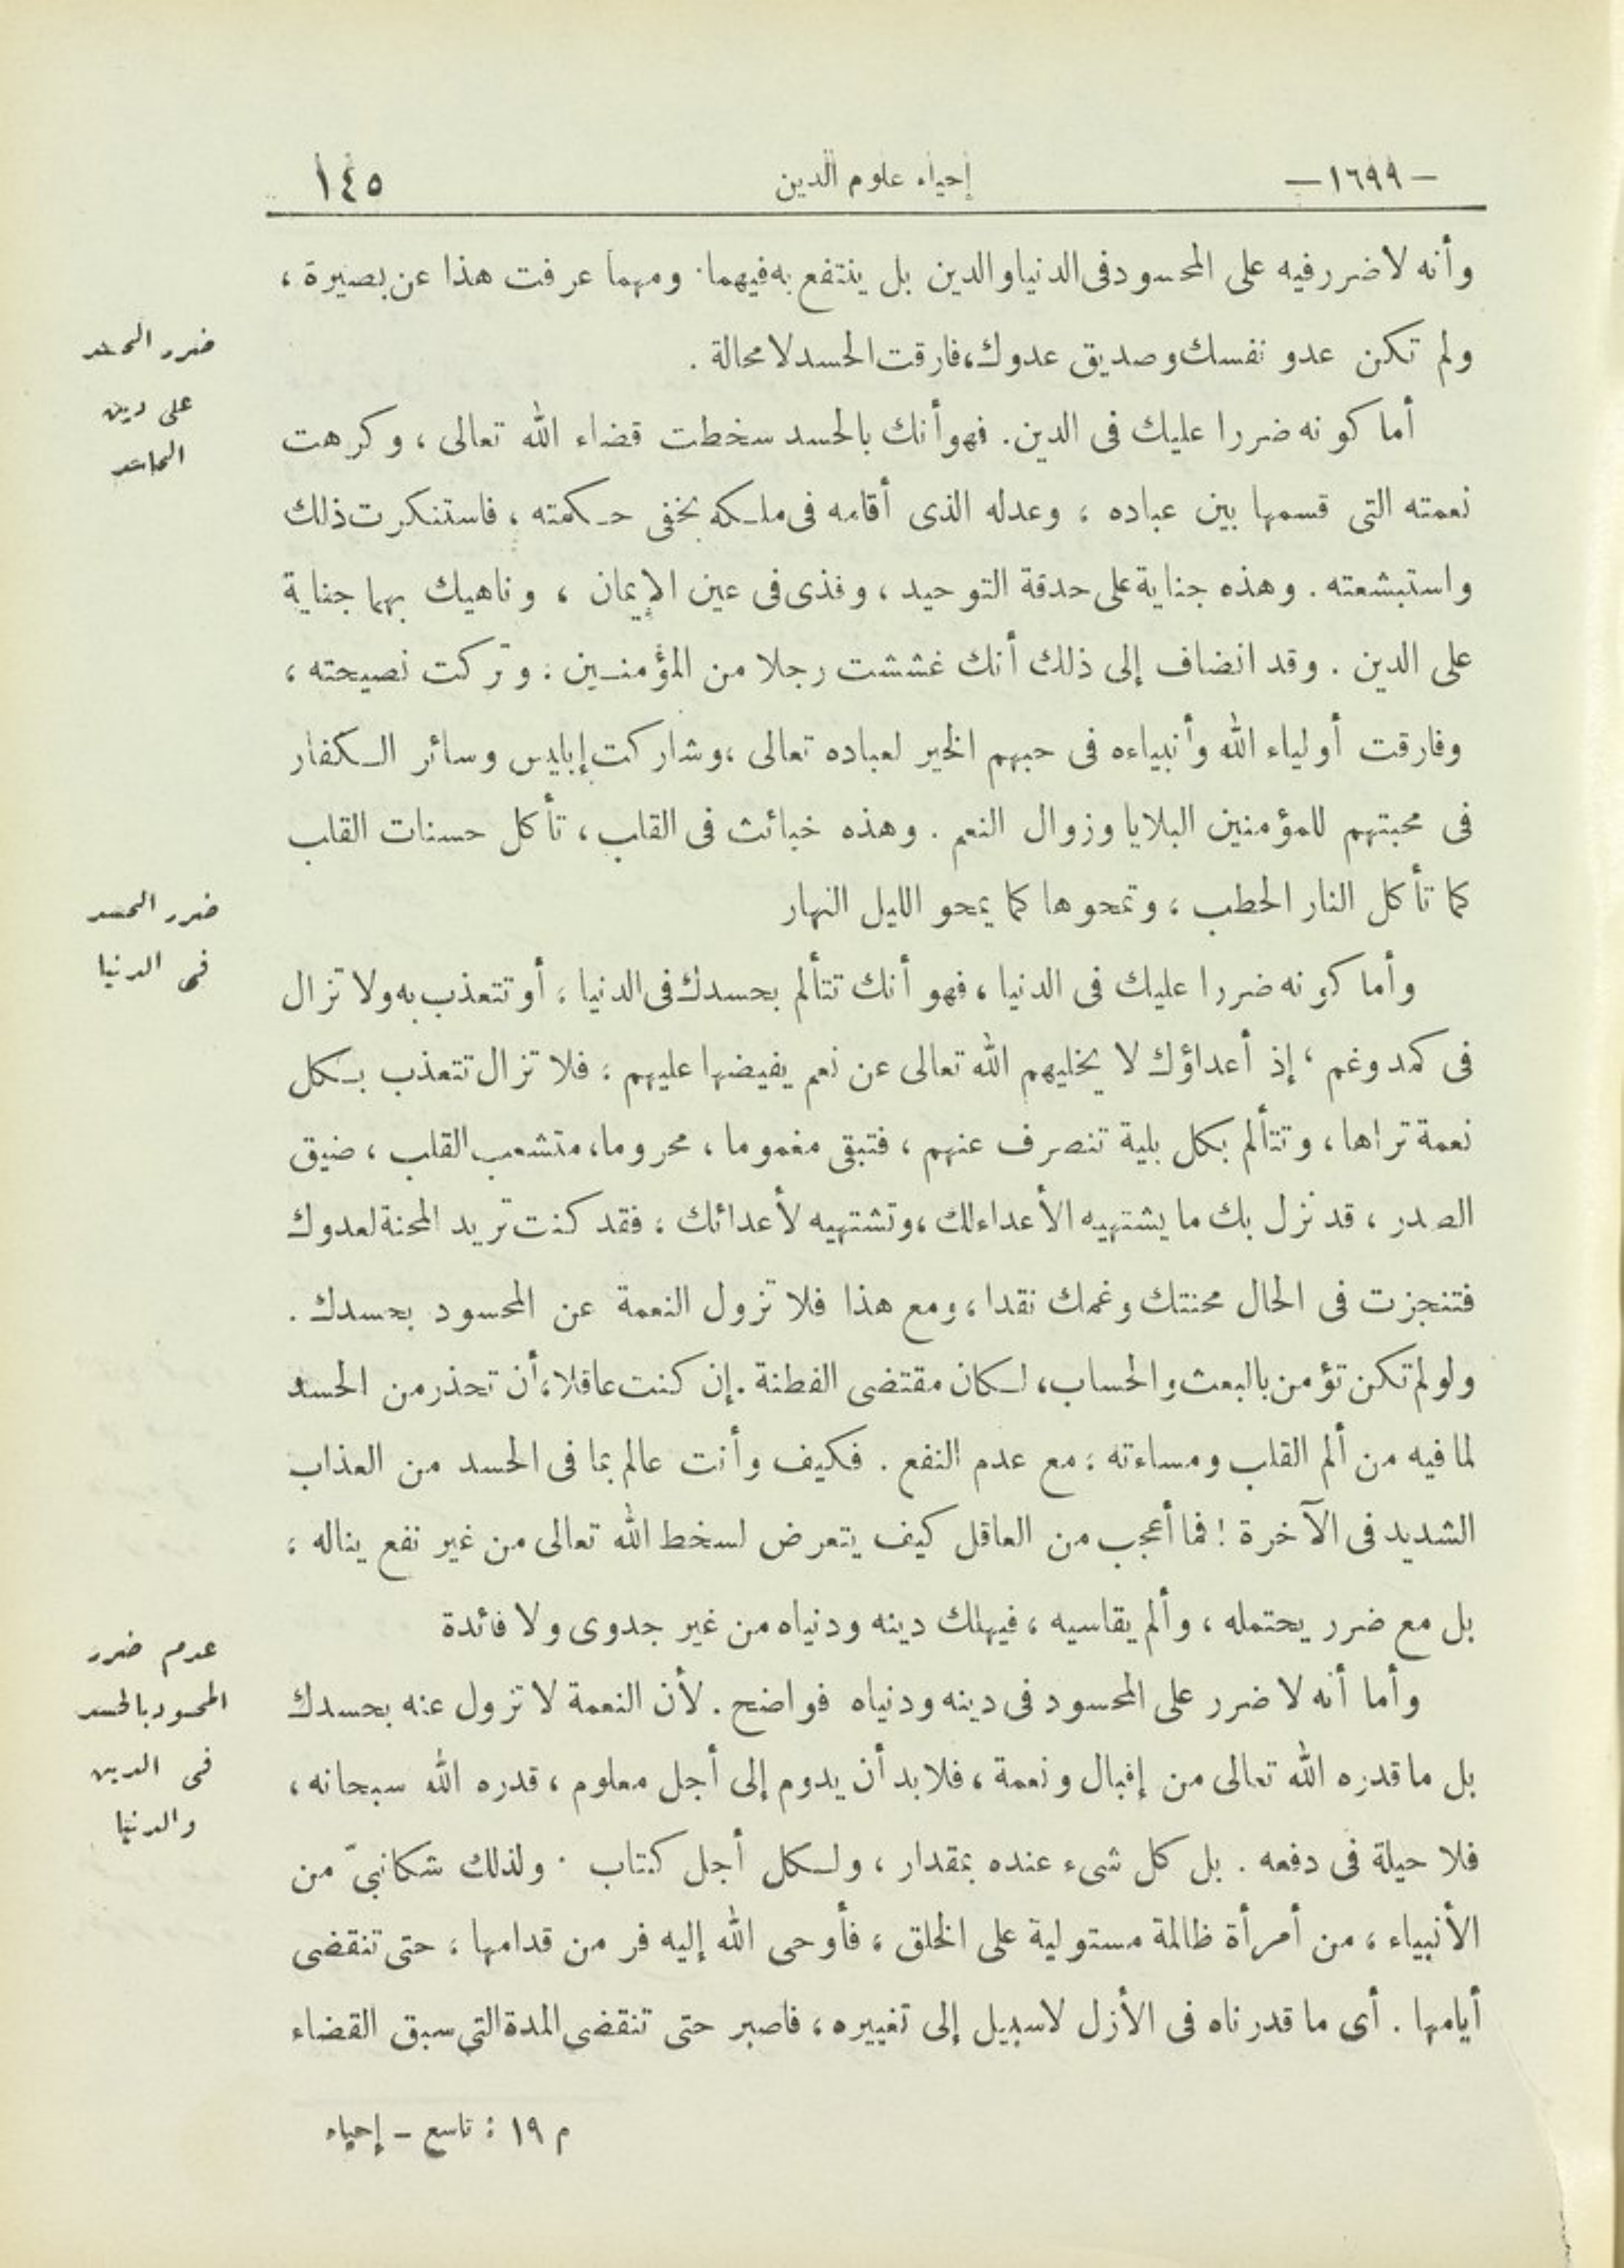 -١٦٩٩-
إحياء علوم الدين
١٤٥
وأنه لا ضرر فيه على المحسود فى الدنيا والدين بل ينتفع به فيهما. ومهما عرفت هذا عن بصيرة ،
ولم تكن عدو نفسك وصديق عدوك، فارقت الحسد لا محالة .
ضرر الحسد
على دين
الحاسد
أما كونه ضررا عليك فى الدين. فهو أنك بالحسد سخطت قضاء الله تعالى ، وكرهت
نعمته التى قسمها بين عباده ، وعدله الذى أقامه فى ملكه بخفى حكمته ، فاستنكرت ذلك
واستبشعته . وهذه جناية على حدقة التوحيد ، وقذى فى عين الإيمان ، وناهيك بهما جناية
على الدين . وقد انضاف إلى ذلك أنك غششت رجلا من المؤمنين . وتركت نصيحته ،
وفارقت أولياء الله وأنبياءه فى حبهم الخير لعباده تعالى ، وشاركت إبليس وسائر الكفار
فى محبتهم للمؤمنين البلايا وزوال النعم . وهذه خبائث فى القلب ، تأكل حسنات القلب
كما تأكل النار الحطب ، وتمحوها كما يمحو الليل النهار
ضرر الحسد
فى الدنيا
وأما كونه ضررا عليك فى الدنيا ، فهو أنك تتألم بحسدك فى الدنيا ، أو تتعذب به ولا تزال
فى كمد وغم ، إذ أعداؤك لا يخليهم الله تعالى عن نعم يفيضها عليهم ، فلا تزال تتعذب بكل
نعمة تراها ، وتتألم بكل بلية تنصرف عنهم ، فتبقى مغموما ، محروما ، متشعب القلب ، ضيق
الصدر ، قد نزل بك ما يشتهيه الأعداء لك ، وتشتهيه لأعدائك ، فقد كنت تريد المحنة لعدوك
فتنجزت فى الحال محنتك وغمك نقدا ، ومع هذا فلا تزول النعمة عن المحسود بحسدك .
ولو لم تكن تؤمن بالبعث والحساب، لكان مقتضى الفطنة . إن كنت عاقلا ، أن تحذر من الحسد
لما فيه من ألم القلب ومساءته ؛ مع عدم النفع . فكيف وأنت عالم بما فى الحسد من العذاب
الشديد فى الآخرة ! فما أعجب من العاقل كيف يتعرض لسخط الله تعالى من غير نفع يناله ،
بل مع ضرر يحتمله ، وألم يقاسيه ، فيهلك دينه ودنياه من غير جدوى ولا فائدة
عدم ضرر
المحسود بالحسد
فى الدين
والدنيا
وأما أنه لا ضرر على المحسود فى دينه ودنياه فواضح . لأن النعمة لا تزول عنه بحسدك
بل ما قدره الله تعالى من إقبال ونعمة ، فلا بد أن يدوم إلى أجل معلوم ، قدره الله سبحانه ،
فلا حيلة فى دفعه . بل كل شىء عنده بمقدار ، ولكل أجل كتاب . ولذلك شكا نبىّ من
الأنبياء ، من أمرأة ظالمة مستولية على الخلق ، فأوحى الله إليه فر من قدامها ، حتى تنقضى
أيامها . أى ما قدرناه فى الأزل لا سبيل إلى تغييره ، فاصبر حتى تنقضى المدة التى سبق القضاء
م ١٩ : تاسع - إحياء